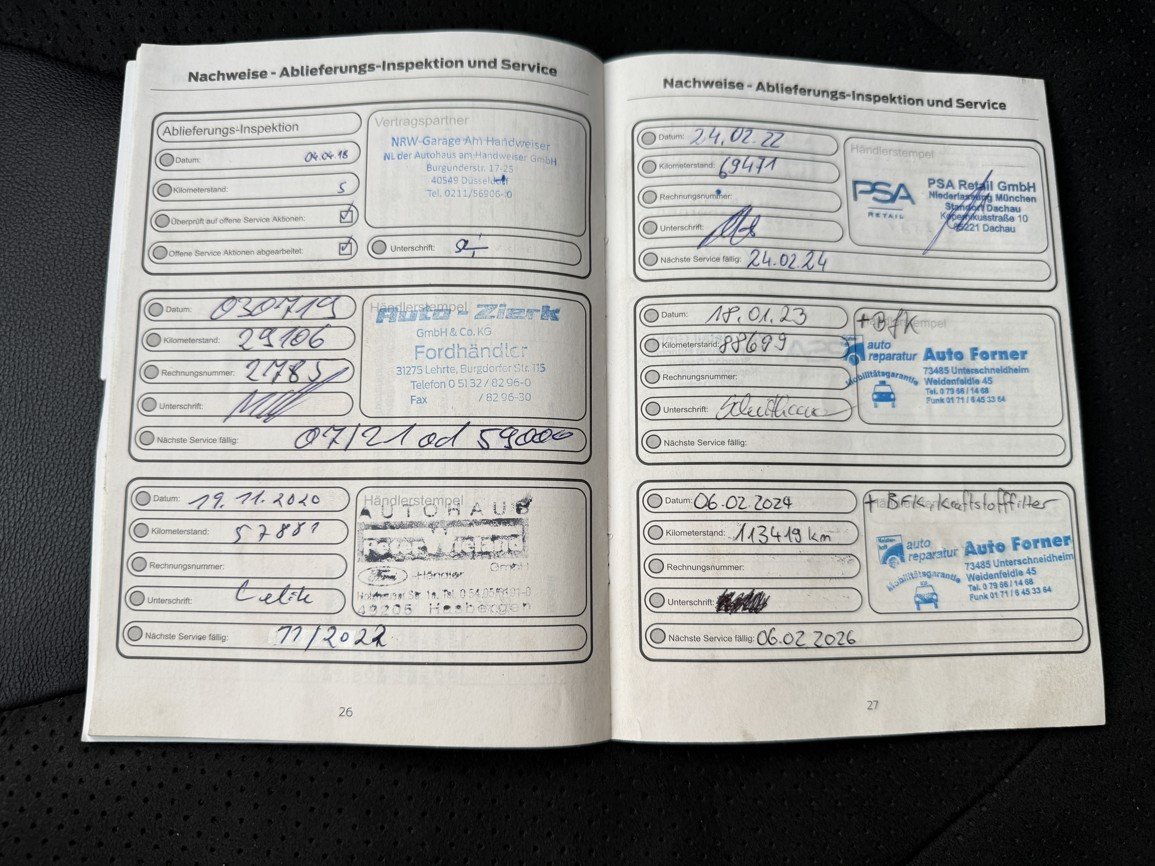 Nachweise - Ablieferungs-Inspektion und Service
Ablieferungs-Inspektion
Datum: 04.04.18
Kilometerstand: 5
Überprüft auf offene Service Aktionen:
Offene Service Aktionen abgearbeitet:
Vertragspartner
NRW-Garage Am Handweiser
NL der Autohaus am Handweiser GmbH
Burgunderstr. 17-25
40549 Düsseldorf
Tel. 0211/56906-0
Unterschrift:
Datum: 030719
Kilometerstand: 29106
Rechnungsnummer: 2785
Unterschrift:
Händlerstempel
Auto-Zierk
GmbH & Co. KG
Fordhändler
31275 Lehrte, Burgdorfer Str. 115
Telefon 0 51 32 / 82 96-0
Fax / 82 96-30
Nächste Service fällig: 07/21 od 59000
Datum: 19.11.2020
Kilometerstand: 57881
Rechnungsnummer:
Unterschrift: Celik
Händlerstempel
AUTOHAUS
GmbH
Ford -Händler
49205 Hasbergen
Nächste Service fällig: 11/2022
26
Nachweise - Ablieferungs-Inspektion und Service
Datum: 24.02.22
Kilometerstand: 69471
Rechnungsnummer:
Unterschrift:
Händlerstempel
PSA
RETAIL
PSA Retail GmbH
Niederlassung München
Standort Dachau
Kopernikusstraße 10
85221 Dachau
Nächste Service fällig: 24.02.24
Datum: 18.01.23
Kilometerstand: 88699
Rechnungsnummer:
Unterschrift:
Händlerstempel
+ BfK
auto
reparatur
Mobilitätsgarantie
Auto Forner
73485 Unterschneidheim
Weidenfeldle 45
Tel. 0 79 66 / 14 68
Funk 01 71 / 6 45 33 64
Nächste Service fällig:
Datum: 06.02.2024
Kilometerstand: 113419 km
Rechnungsnummer:
Unterschrift:
+ BFK + Kraftstofffilter
auto
reparatur
Mobilitätsgarantie
Auto Forner
73485 Unterschneidheim
Weidenfeldle 45
Tel. 0 79 66 / 14 68
Funk 01 71 / 6 45 33 64
Nächste Service fällig: 06.02 2026
27